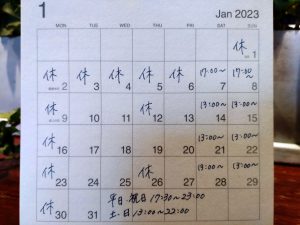 1 Jan 2023
MON TUE WED THU FRI SAT SUN
休 1
休 2 休 3 休 4 休 5 休 6 17:00〜 7 17:00〜 8
休 9 10 11 休 12 13 13:00〜 14 13:00〜 15
休 16 17 18 19 20 13:00〜 21 13:00〜 22
休 23 24 25 休 26 27 13:00〜 28 13:00〜 29
休 30 31 平日 祝日 17:30〜23:00
土・日 13:00〜22:00